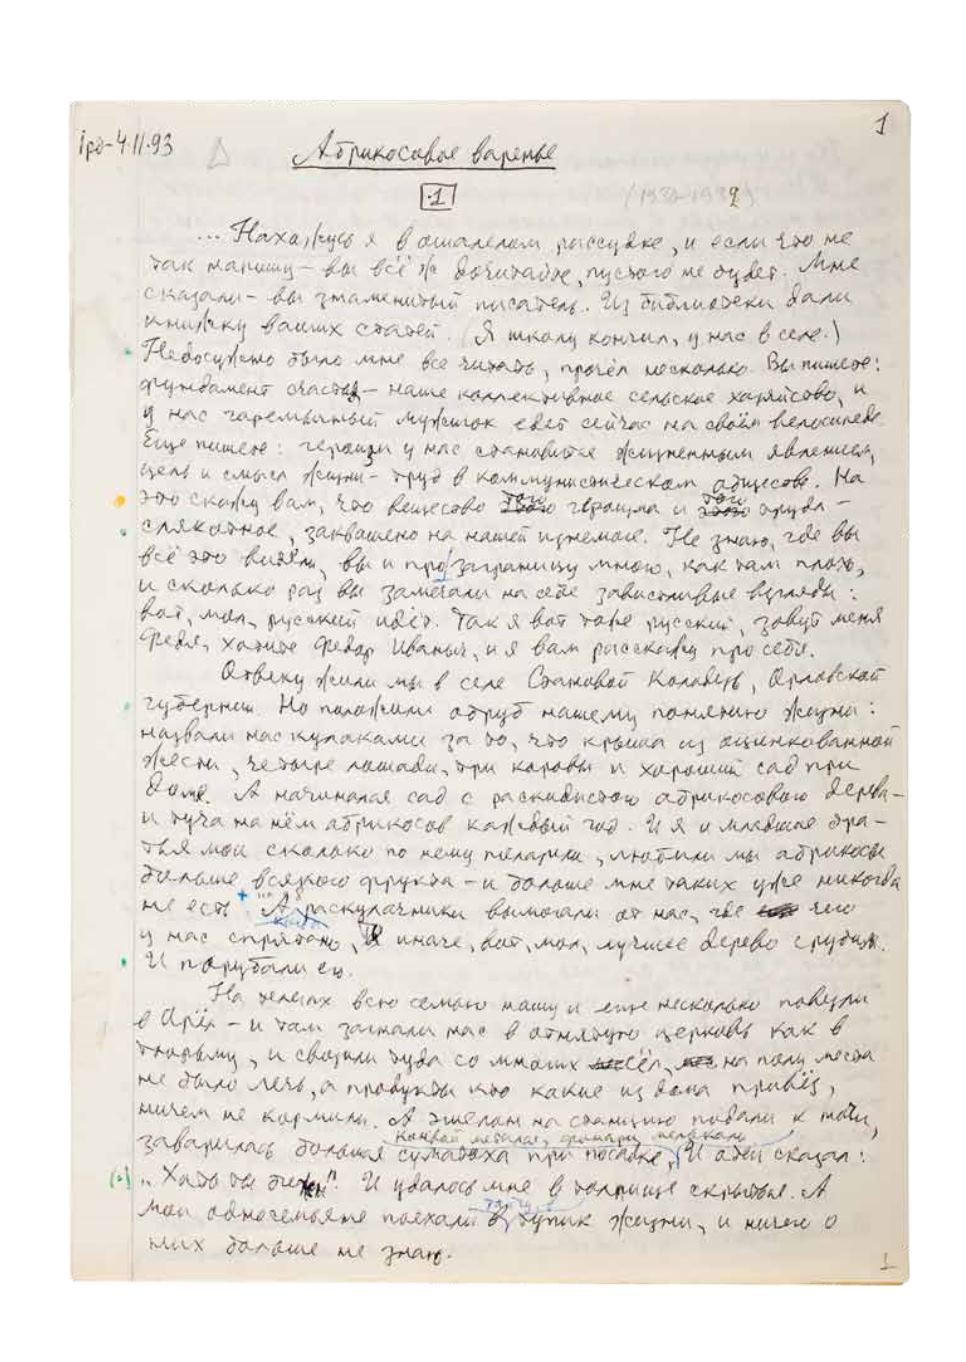 1
4.11.93
Абрикосовое варенье
1
... Нахожусь я в ошалелом рассудке, и если что не
так напишу – вы всё ж дочитайте, пустого не будет. Мне
сказали – вы знаменитый писатель. Из библиотеки дали
книжку ваших статей. (Я школу кончил, у нас в селе.)
Недосужно было мне все читать, прочёл несколько. Вы пишете:
фундамент счастья – наше коллективное сельское хозяйство, и
у нас горемычный мужичок едет сейчас на своём велосипеде.
Ещё пишете: героизм у нас становится жизненным явлением,
цель и смысл жизни – труд в коммунистическом обществе. На
это скажу вам, что вещество того героизма и того труда –
слякотное, заквашено на нашей изнемоге. Не знаю, где вы
всё это видели, вы и про заграницу много, как там плохо,
и сколько раз вы замечали на себе завистливые взгляды:
вот, мол, русский идёт. Так я вот тоже русский, зовут меня
Федя, хотите Федор Иваныч, и я вам расскажу про себя.
Отвеку жили мы в селе Становой Колодезь, Орловской
губернии. Но положили обруб нашему понятию жизни:
назвали нас кулаками за то, что крыша из оцинкованной
жести, четыре лошади, три коровы и хороший сад при
доме. А начинался сад с раскидистого абрикосового дерева –
и туча на нём абрикосов каждый год. И я и младшие бра-
тья мои сколько по нему полазили, любили мы абрикосы
больше всякого фрукта – и больше мне таких уже никогда
не есть. А раскулачники вымогали от нас, где чего
у нас спрятано, иначе, вот, мол, лучшее дерево срубим.
И порубали его.
На телегах всю семью нашу и ещё несколько повезли
в Орёл – и там загнали нас в отнятую церковь как в
тюрьму, и свозили туда со многих сёл, на полу места
не было лечь, а продукты кто какие из дома привёз,
ничем не кормили. А эшелон на станцию подали к ночи,
конвой метался, фонари мелькали
заварилась большая суматоха при посадке, И отец сказал:
„Хоть ты беги". И удалось мне в толпище скрыться. А
мои односемьяне поехали в тупик жизни, и ничего о
них больше не знаю.
1